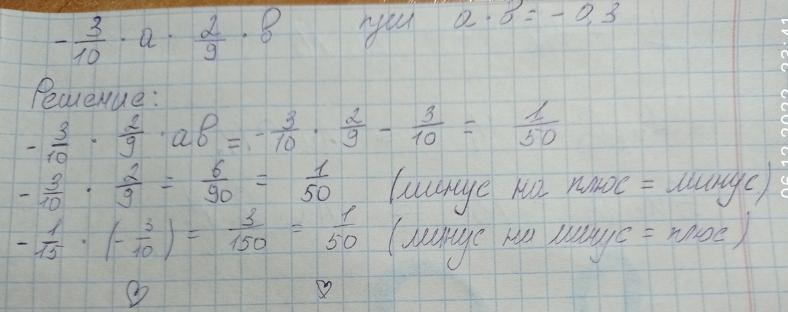 -3/10 · a · 2/9 · b при a · b = -0,3
Решение:
-3/10 · 2/9 · ab = -3/10 · 2/9 - 3/10 = 1/50
-3/10 · 2/9 = 6/90 = 1/50 (минус на плюс = минус)
-1/15 · (-3/10) = 3/150 = 1/50 (минус на минус = плюс)
06.12.2022 23:41